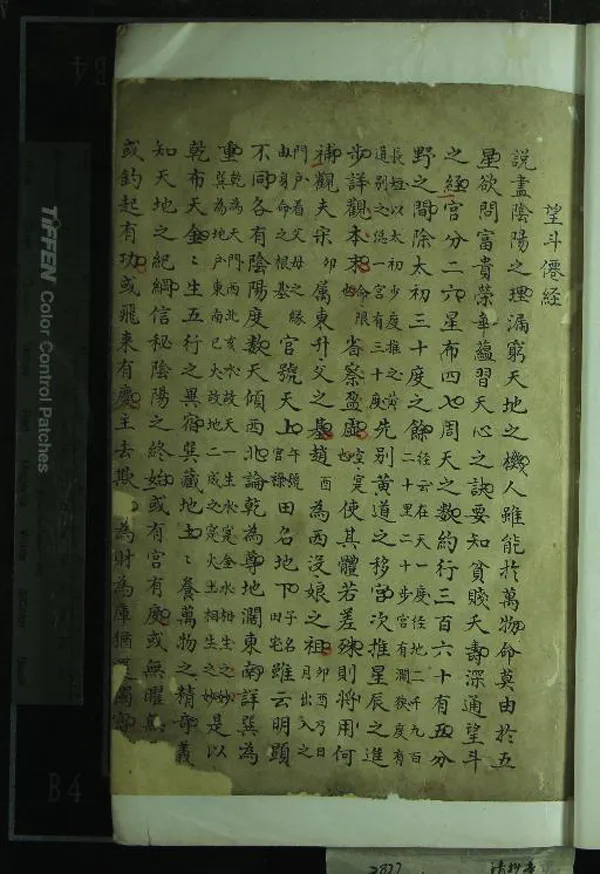 望斗僊経
說盡陰陽之理漏窮天地之機人雖能於萬物命莫由於五
星欲問富貴榮華蘊習天心之訣要知貧賤夭壽深通望斗
之経宮分二六星布四七周天之數約行三百六十有五分
野之間除太初三十度之餘径云在天一度径地二千九百
二十里二十步宮有濶狹度有
長短以太初少度推之黄
道别之緦一宮有三十度先别黄道之移宮次推星辰之進
步詳觀本末命限也省察盈虛空寔也使其體若差殊則將用何
補觀夫宋卯属東升父之墓趙酉為西沒娘之祖卯酉乃日
月出入之
門戸看父母之緣
由身命之根基官號天上午號官祿田名地下子名田宅雖云明顕
不同各有陰陽度數天傾西北論乾為尊地濶東南詳巽為
重乾為天門西北亥水故天一生水寔金水相生之妙
巽為地戸東南巳火故地二成之寔火土相生之妙是以
乾布天金金生五行之異宿巽藏地土土養萬物之精竒義
知天地之紀綱信秘陰陽之終始或有宮有度或無曜無
或釣起有功或飛来有慶主去欺為財為庫猶
TIFFEN Color Control Patches
B4